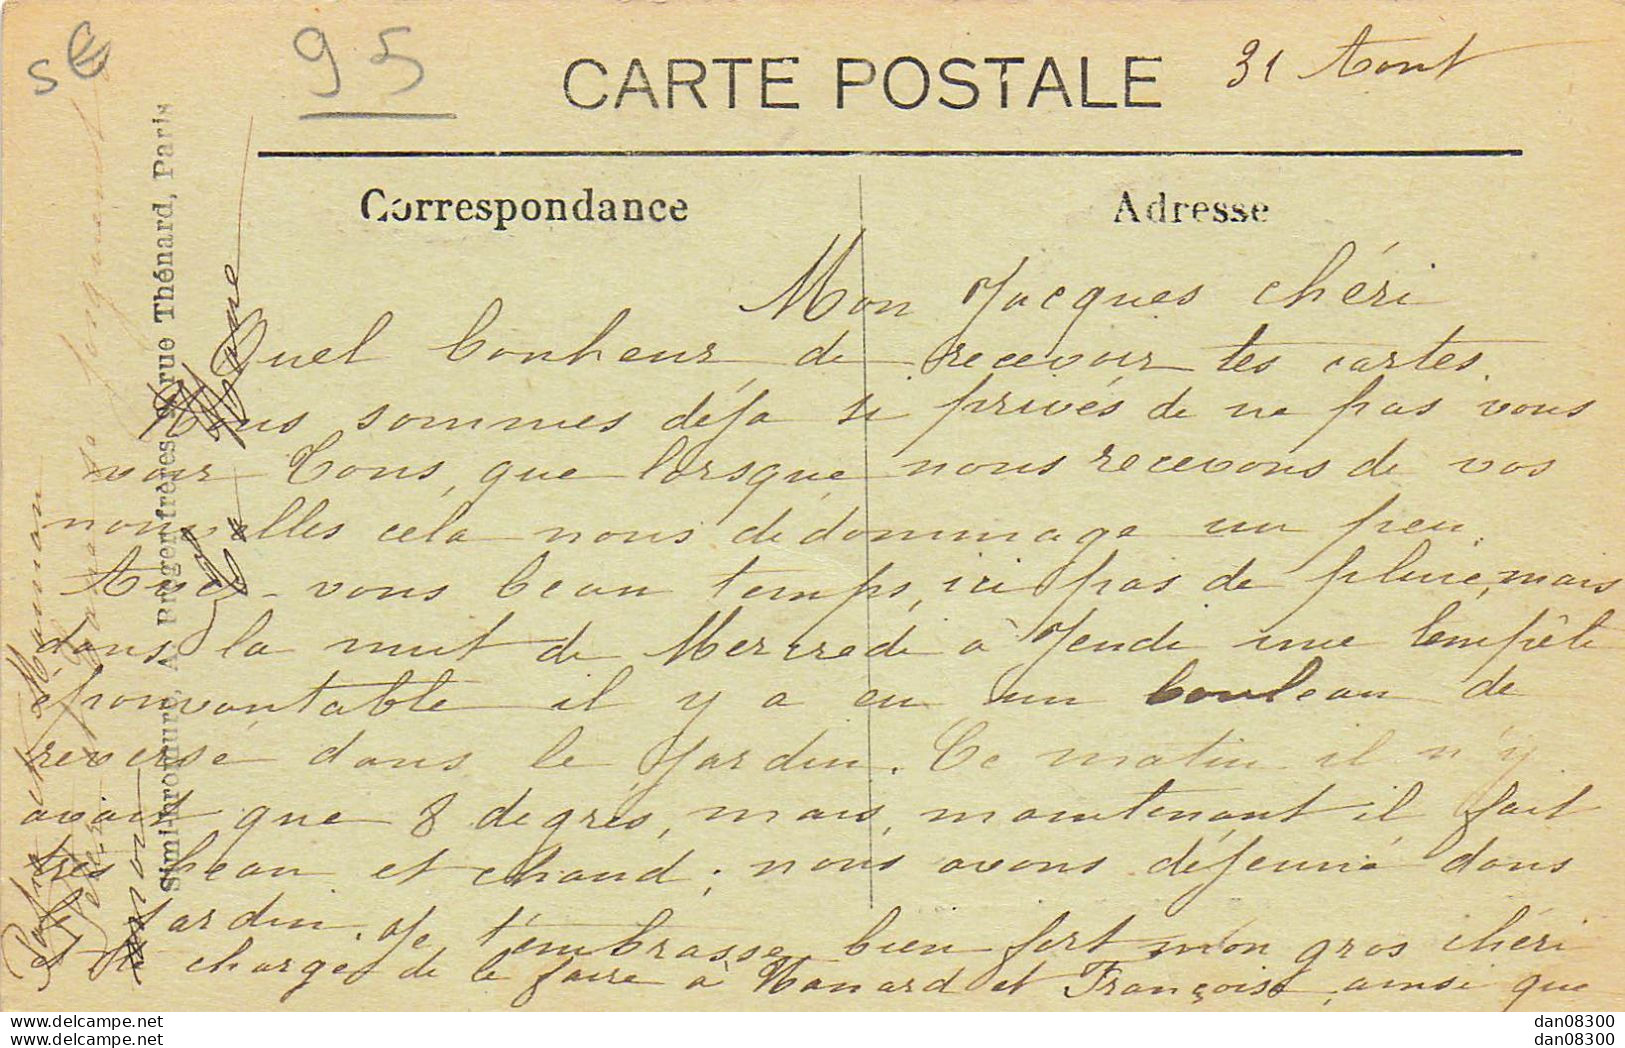 5€
95
CARTE POSTALE
31 Aout
Correspondance
Adresse
Mon Jacques chéri
Quel bonheur de recevoir tes cartes.
Nous sommes déja si privés de ne pas vous
voir tous, que lorsque nous recevons de vos
nouvelles cela nous dedommage un peu.
Avez-vous beau temps, ici pas de pluie, mais
dans la nuit de Mercredi à Jeudi une tempête
épouvantable il y a eu un bouleau de
reversé dans le jardin. Ce matin il n'y
avait que 8 degrés, mais, maintenant il fait
très beau et chaud; nous avons déjeuné dans
jardin. Je t'embrasse bien fort mon gros chéri
et te charge de le faire à Nanard et Françoise, ainsi que
Simili-bromure, A. Breger frères, 9 rue Thénard, Paris
dan08300
dan08300
dan08300
dan08300